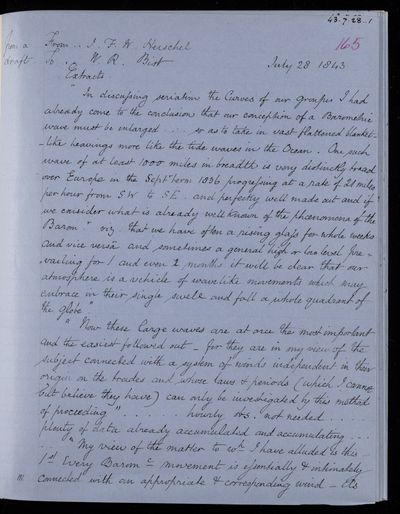 48.7.28.1
from a From .. J. F. W. Herschel 165
draft To .. W. R. Birt July 28 1843
Extracts
"In discussing seriatim the Curves of our groups I had
already come to the conclusion that our conception of a Barometric
wave must be enlarged .... so as to take in vast flattened blanket-
-like heavings more like the tide waves in the Ocean. One such
wave of at least 1000 miles in breadth is very distinctly traced
over Europe in the Sept term 1836 progressing at a rate of 21 miles
per hour from SW to SE. and perfectly well made out and if
we consider what is already well known of the phaenomena of the
Barom viz that we have often a rising glass for whole weeks
and vice versa and sometimes a general high or low level pre-
vailing for 1 and even 2 months it will be clear that our
atmosphere is a vehicle of wavelike movements which may
embrace in their single swell and fall a whole quadrant of
the globe"
"Now these large waves are at once the most important
and the easiest followed out - for they are in my view of the
subject connected with a system of winds independent in their
origin on the trades and whose laws & periods (which I cannot
but believe they have) can only be investigated by this method
of proceeding" ..... hourly obs. not needed ...
plenty of data already accumulated and accumulating ...
"My view of the matter to wh I have alluded is this -
1st Every Baromc movement is essentially & intimately
connected with an appropriate & corresponding wind - Its